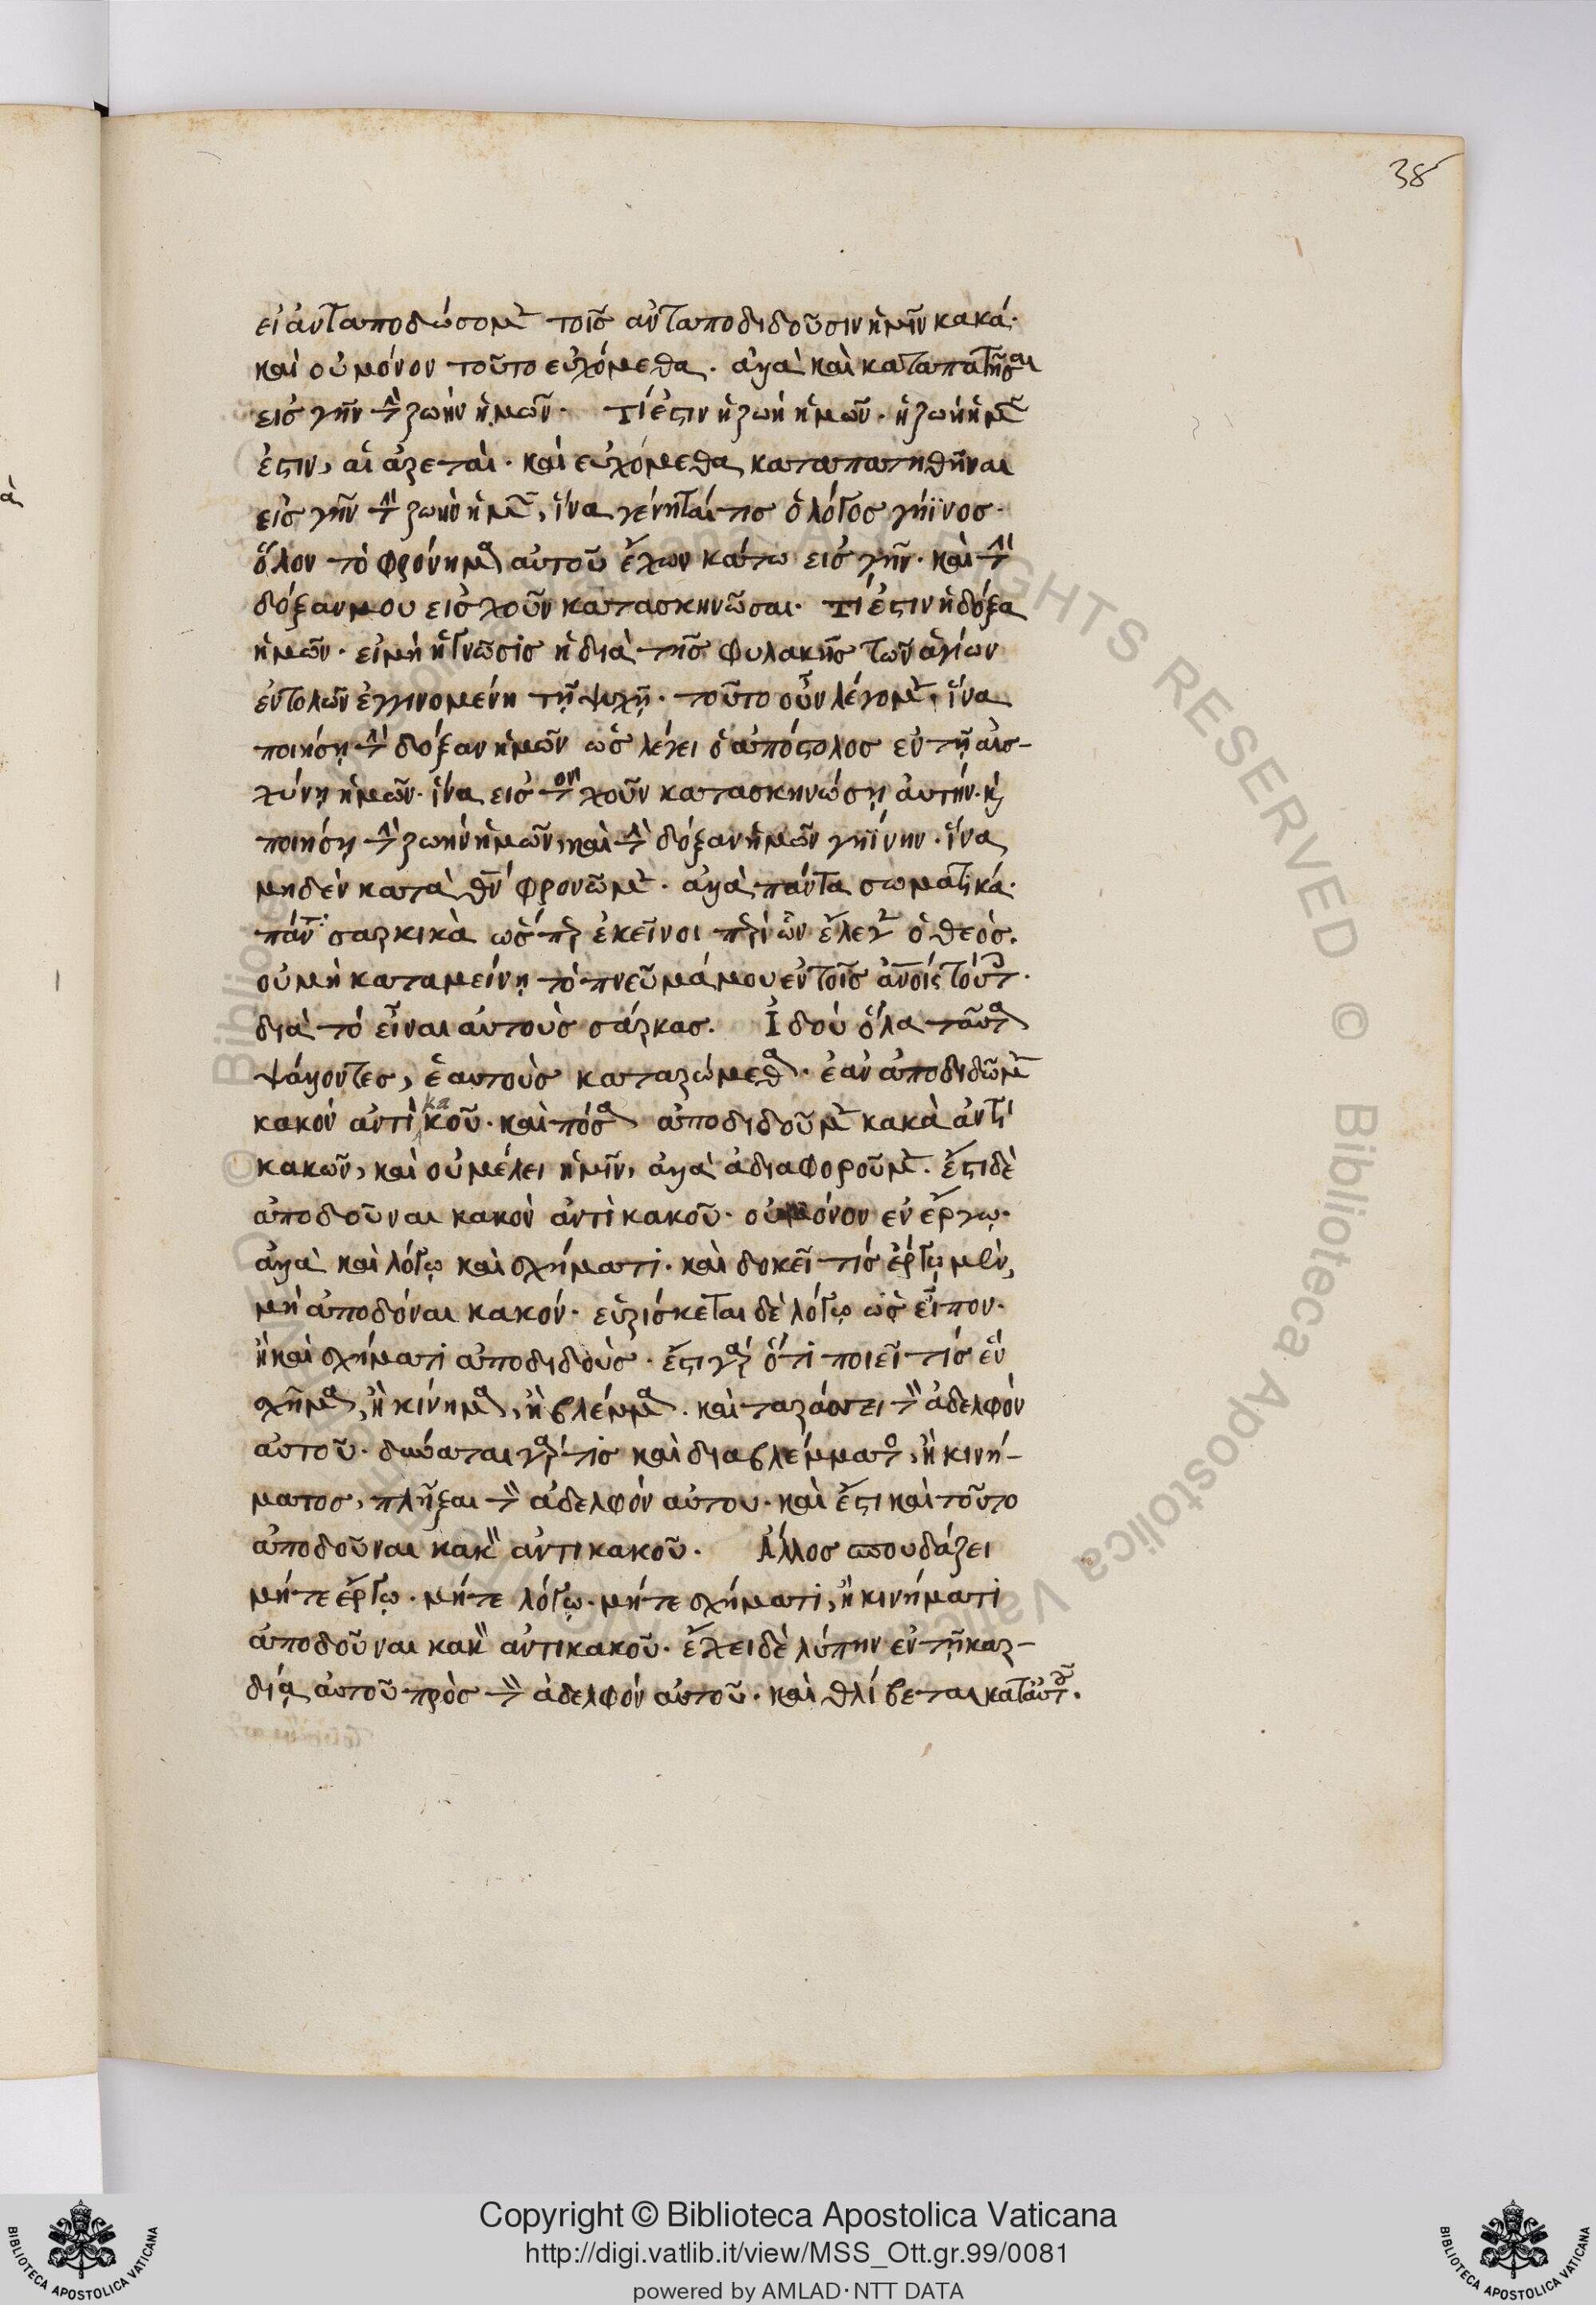 38
εἰ ἀνταποδώσομεν τοῖς ἀνταποδιδοῦσιν ἡμῖν κακά·
καὶ οὐ μόνον τοῦτο εὐχόμεθα· ἀλλὰ καὶ καταπατῆσαι
εἰς γῆν τὴν ζωὴν ἡμῶν· τί ἐστιν ἡ ζωὴ ἡμῶν· ἡ ζωὴ ἡμῶν
ἐστιν, αἱ ἀρεταί· καὶ εὐχόμεθα καταπατηθῆναι
εἰς γῆν τὴν ζωὴν ἡμῶν, ἵνα γένηταί τις ὁ λόγος γήϊνος·
ὅλον τὸ φρόνημα αὐτοῦ ἔχων κάτω εἰς γῆν· καὶ τὴν
δόξαν μου εἰς χοῦν κατασκηνῶσαι· τί ἐστιν ἡ δόξα
ἡμῶν· εἰ μὴ ἡ γνῶσις ἡ διὰ τῆς φυλακῆς τῶν ἁγίων
ἐντολῶν ἐγγινομένη τῇ ψυχῇ· τοῦτο οὖν λέγομεν, ἵνα
ποιήσῃ τὴν δόξαν ἡμῶν ὡς λέγει ὁ ἀπόστολος ἐν τῇ αἰσ-
χύνῃ ἡμῶν· ἵνα εἰς τὸν χοῦν κατασκηνώσῃ αὐτήν· καὶ
ποιήσῃ τὴν ζωὴν ἡμῶν καὶ τὴν δόξαν ἡμῶν γηΐνην· ἵνα
μηδὲν κατὰ θν φρονῶμεν· ἀλλὰ πάντα σωματικά·
πάντα σαρκικὰ ὥσπερ ἐκεῖνοι περὶ ὧν ἔλεγεν ὁ θεός.
οὐ μὴ καταμείνῃ τὸ πνεῦμά μου ἐν τοῖς ἀνοις τούτοις·
διὰ τὸ εἶναι αὐτοὺς σάρκας. Ἰδοὺ ὅλα ταῦτα
ψάλλοντες, ἑαυτοὺς καταρώμεθα· ἐὰν ἀποδιδῶμεν
κακὸν ἀντὶ κακοῦ· καὶ πόσα ἀποδιδοῦμεν κακὰ ἀντὶ
κακῶν, καὶ οὐ μέλει ἡμῖν, ἀλλὰ ἀδιαφοροῦμεν. ἔστι δὲ
ἀποδοῦναι κακὸν ἀντὶ κακοῦ· οὐ μόνον ἐν ἔργῳ·
ἀλλὰ καὶ λόγῳ καὶ σχήματι· καὶ δοκεῖ τίς ἔργῳ μὲν,
μὴ ἀποδόναι κακόν· εὑρίσκεται δὲ λόγῳ ὡς εἶπον·
ἢ καὶ σχήματι ἀποδιδούς· ἔστι γὰρ ὅτι ποιεῖ τίς ἓν
σχῆμα, ἢ κίνημα, ἢ βλέμμα· καὶ ταράσσει τὸν ἀδελφὸν
αὐτοῦ· δύναται γάρ τις καὶ διὰ βλέμματος, ἢ κινή-
ματος, πλῆξαι τὸν ἀδελφὸν αὐτου· καὶ ἔστι καὶ τοῦτο
ἀποδοῦναι κακὸν ἀντι κακοῦ· Ἄλλος σπουδάζει
μήτε ἔργῳ· μήτε λόγῳ· μήτε σχήματι, ἢ κινήματι
ἀποδοῦναι κακὸν ἀντι κακοῦ· ἔχει δὲ λύπην ἐν τῇ καρ-
δίᾳ αὐτοῦ πρὸς τὸν ἀδελφὸν αὐτοῦ· καὶ θλίβεται κατ' αὐτοῦ.
Copyright © Biblioteca Apostolica Vaticana
http://digi.vatlib.it/view/MSS_Ott.gr.99/0081
powered by AMLAD·NTT DATA